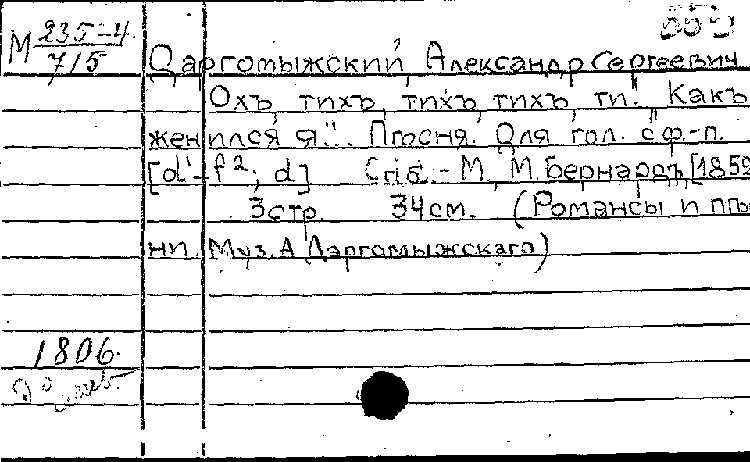 М 235-4
715
Даргомыжский, Александр Сергеевич
Охъ, тихъ, тихъ, тихъ, ти!.. Какъ
женился я"... Пѣсня. Для гол. с ф.-п.
[d¹-f²; d] Спб.- М., М. Бернардъ, [1859
3 стр. 34 см. (Романсы и пѣ
ни. Муз. А. Даргомыжскаго)
1806.